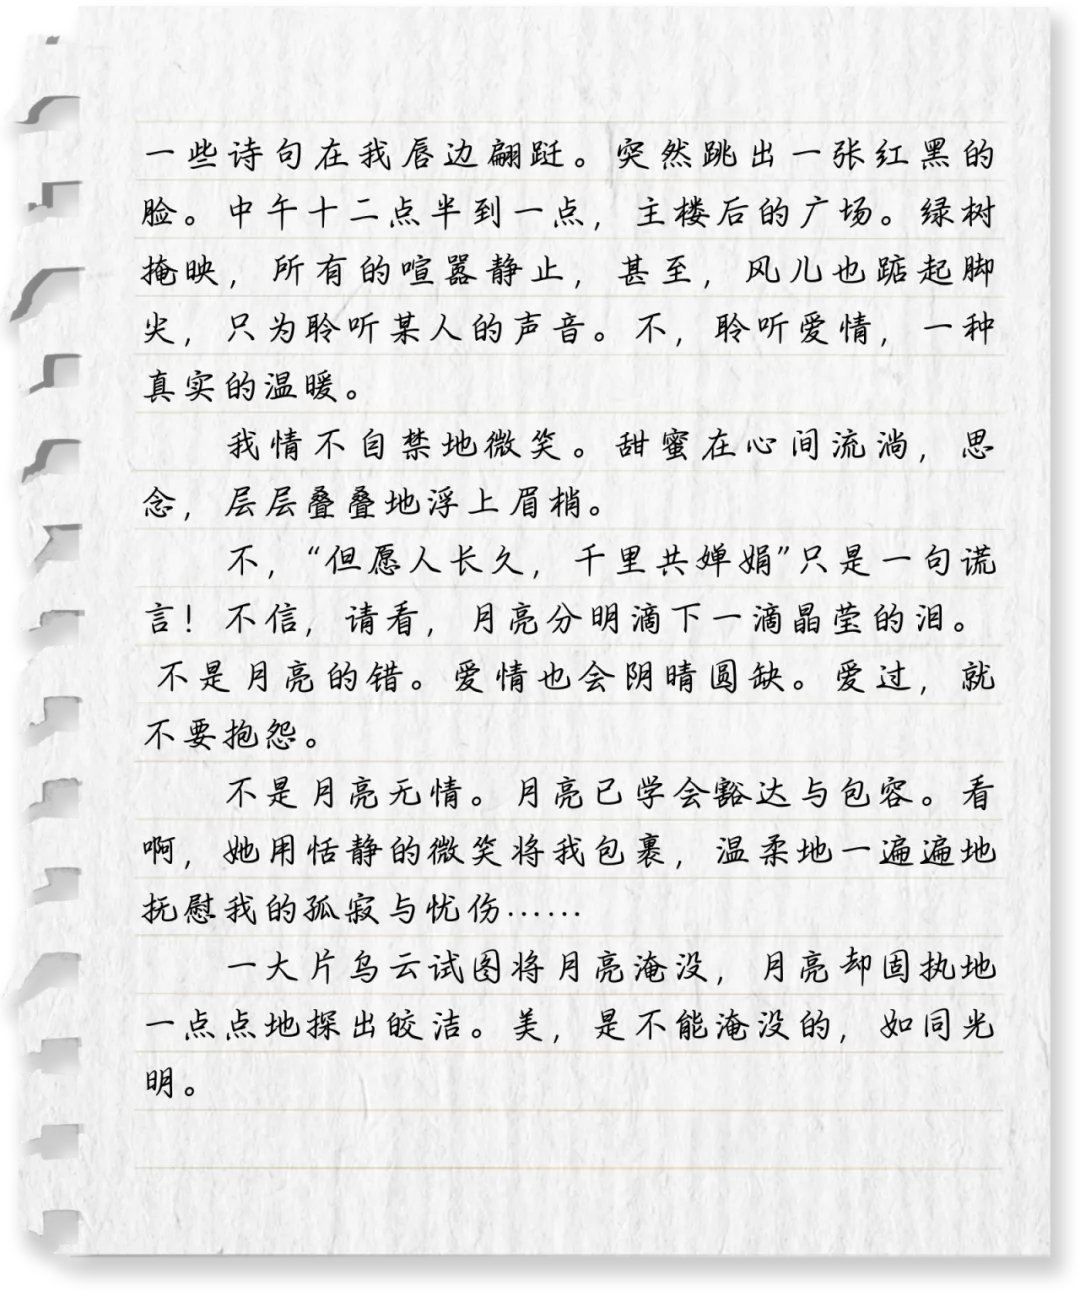 一些诗句在我唇边翩跹。突然跳出一张红黑的
脸。中午十二点半到一点，主楼后的广场。绿树
掩映，所有的喧嚣静止，甚至，风儿也踮起脚
尖，只为聆听某人的声音。不，聆听爱情，一种
真实的温暖。
我情不自禁地微笑。甜蜜在心间流淌，思
念，层层叠叠地浮上眉梢。
不，“但愿人长久，千里共婵娟”只是一句谎
言！不信，请看，月亮分明滴下一滴晶莹的泪。
不是月亮的错。爱情也会阴晴圆缺。爱过，就
不要抱怨。
不是月亮无情。月亮已学会豁达与包容。看
啊，她用恬静的微笑将我包裹，温柔地一遍遍地
抚慰我的孤寂与忧伤……
一大片乌云试图将月亮淹没，月亮却固执地
一点点地探出皎洁。美，是不能淹没的，如同光
明。